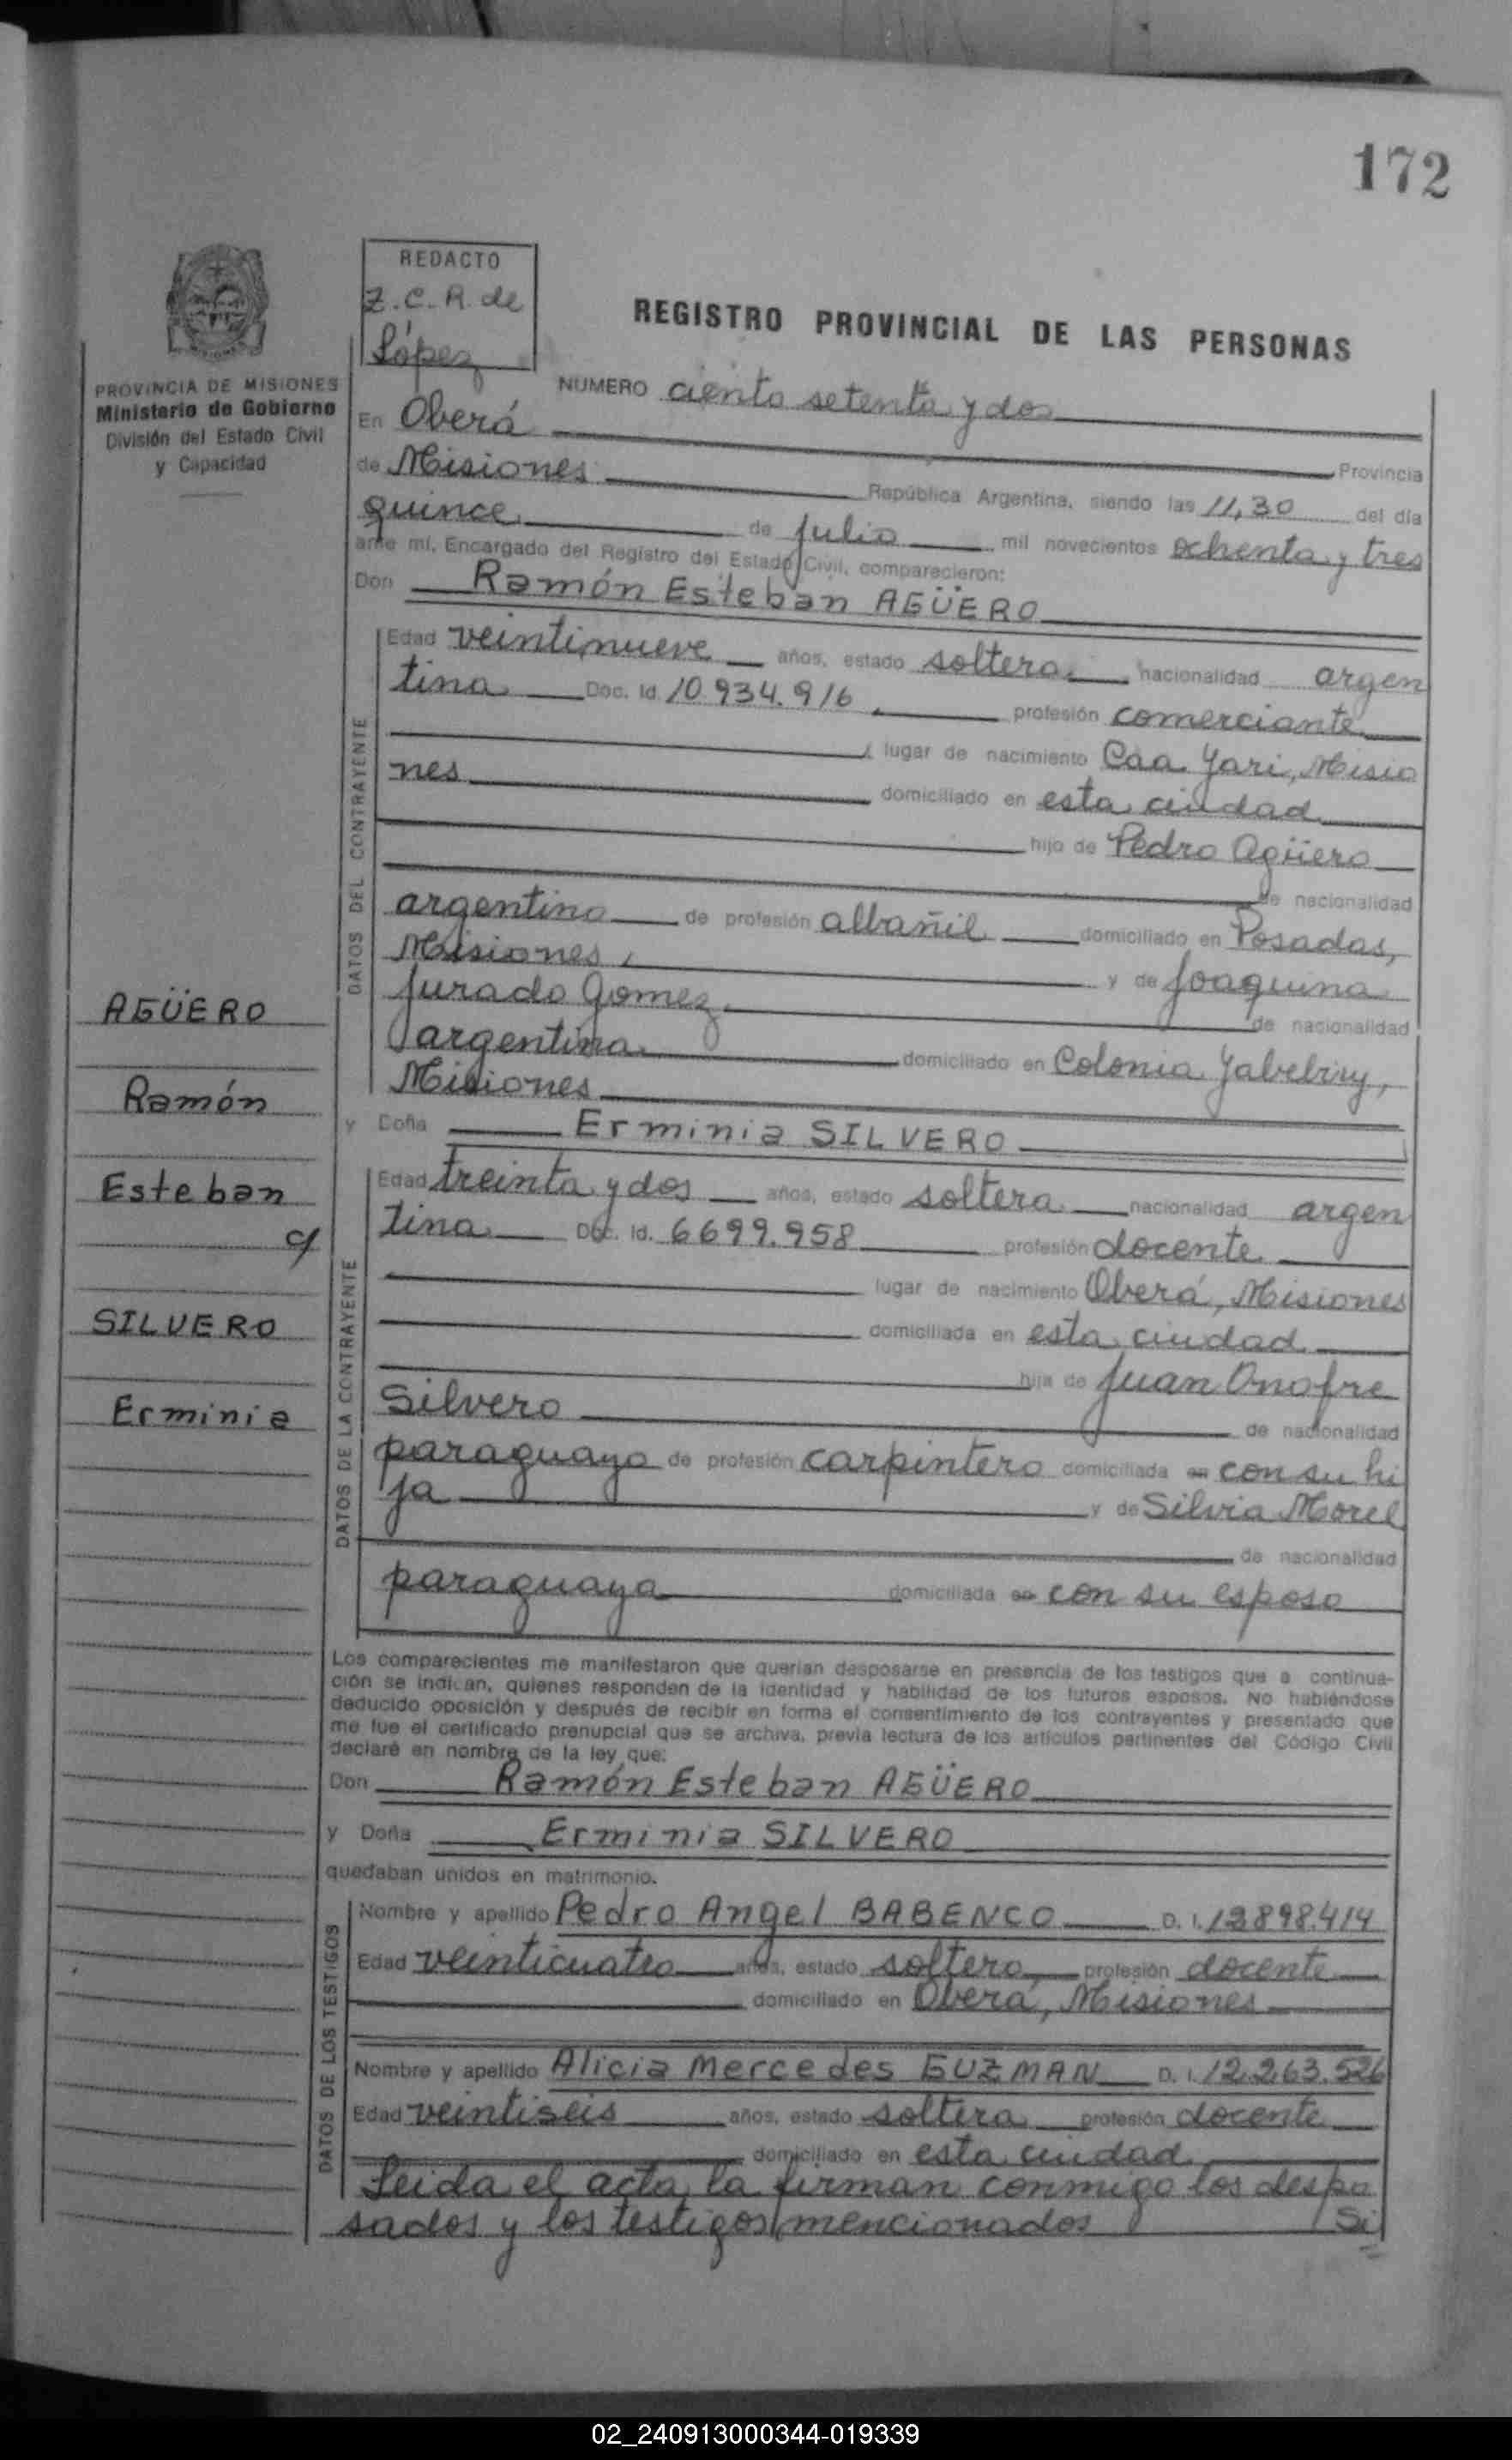 172
REDACTO
Z.C.R. de
López
REGISTRO PROVINCIAL DE LAS PERSONAS
PROVINCIA DE MISIONES
Ministerio de Gobierno
División del Estado Civil
y Capacidad
NUMERO ciento setenta y dos
En Oberá Provincia
de Misiones República Argentina, siendo las 11,30 del día
quince de Julio mil novecientos ochenta y tres
ante mí, Encargado del Registro del Estado Civil, comparecieron:
Don Ramón Esteban AGÜERO
DATOS DEL CONTRAYENTE
Edad veintinueve años, estado soltero, nacionalidad argen
tina Doc. Id. 10.934.916, profesión comerciante
lugar de nacimiento Caa Yari, Misio
nes domiciliado en esta ciudad
hijo de Pedro Agüero
de nacionalidad
argentino de profesión albañil domiciliado en Posadas,
Misiones, y de Joaquina
Jurado Gomez de nacionalidad
argentina domiciliado en Colonia Yabebiry,
Misiones
y Doña Erminia SILVERO
DATOS DE LA CONTRAYENTE
Edad treinta y dos años, estado soltera nacionalidad argen
tina Doc. Id. 6699.958 profesión docente
lugar de nacimiento Oberá, Misiones
domiciliada en esta ciudad
hija de Juan Onofre
Silvero de nacionalidad
paraguayo de profesión carpintero domiciliada en con su hi
ja y de Silvia Morel
de nacionalidad
paraguaya domiciliada en con su esposo
Los comparecientes me manifestaron que querían desposarse en presencia de los testigos que a continua-
ción se indican, quienes responden de la identidad y habilidad de los futuros esposos. No habiéndose
deducido oposición y después de recibir en forma el consentimiento de los contrayentes y presentado que
me fue el certificado prenupcial que se archiva, previa lectura de los artículos pertinentes del Código Civil
declaré en nombre de la ley que:
Don Ramón Esteban AGÜERO
y Doña Erminia SILVERO
quedaban unidos en matrimonio.
DATOS DE LOS TESTIGOS
Nombre y apellido Pedro Angel BABENCO D. I. 12898.414
Edad veinticuatro años, estado soltero, profesión docente
domiciliado en Oberá, Misiones
Nombre y apellido Alicia Mercedes GUZMAN D. I. 12.263.526
Edad veintiseis años, estado soltera profesión docente
domiciliado en esta ciudad
Leida el acta, la firman conmigo los despo
sados y los testigos mencionados Si
AGÜERO
Ramón
Esteban
c/
SILVERO
Erminia
02_240913000344-019339